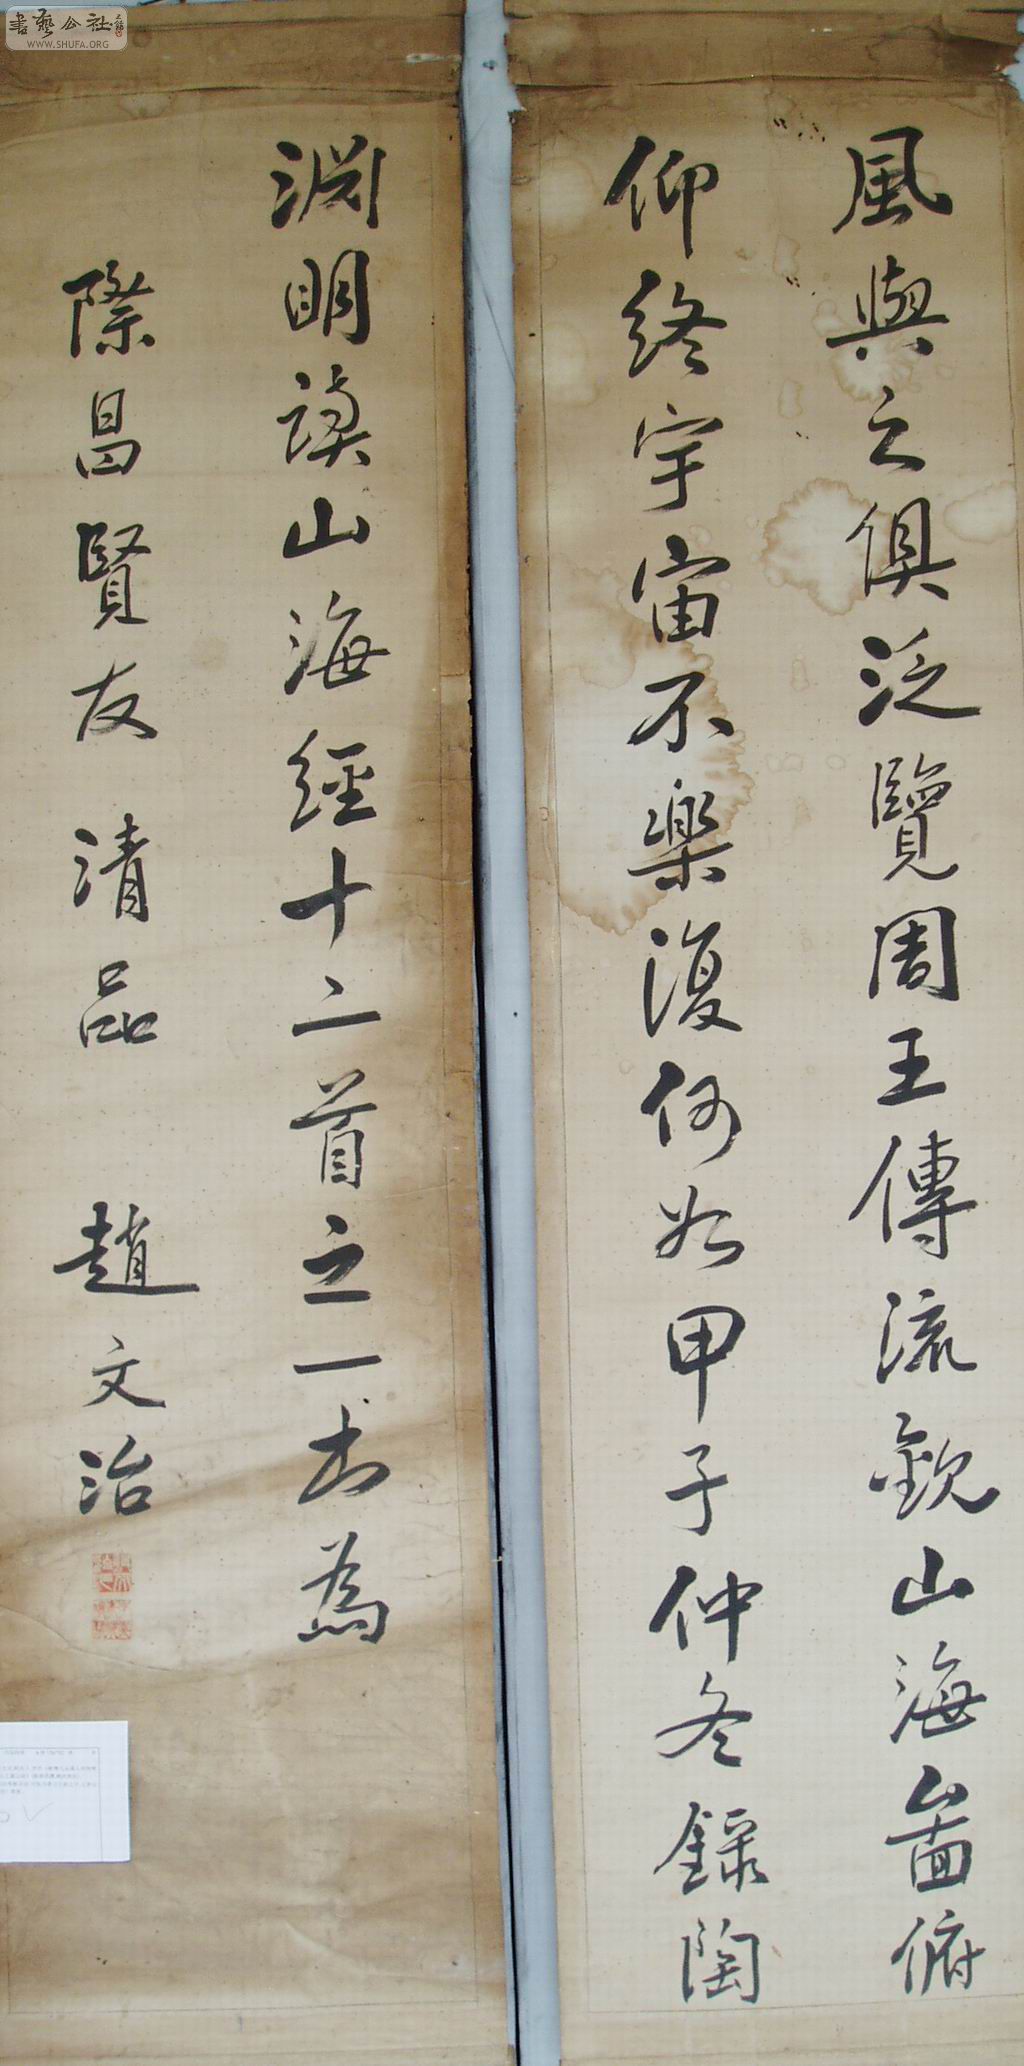 風與之俱泛覽周王傳流觀山海啚俯
仰終宇宙不樂復何如甲子仲冬錄陶
淵明讀山海經十二首之一書為
際昌賢友清品 趙文治
書藝公社
WWW.SHUFA.ORG